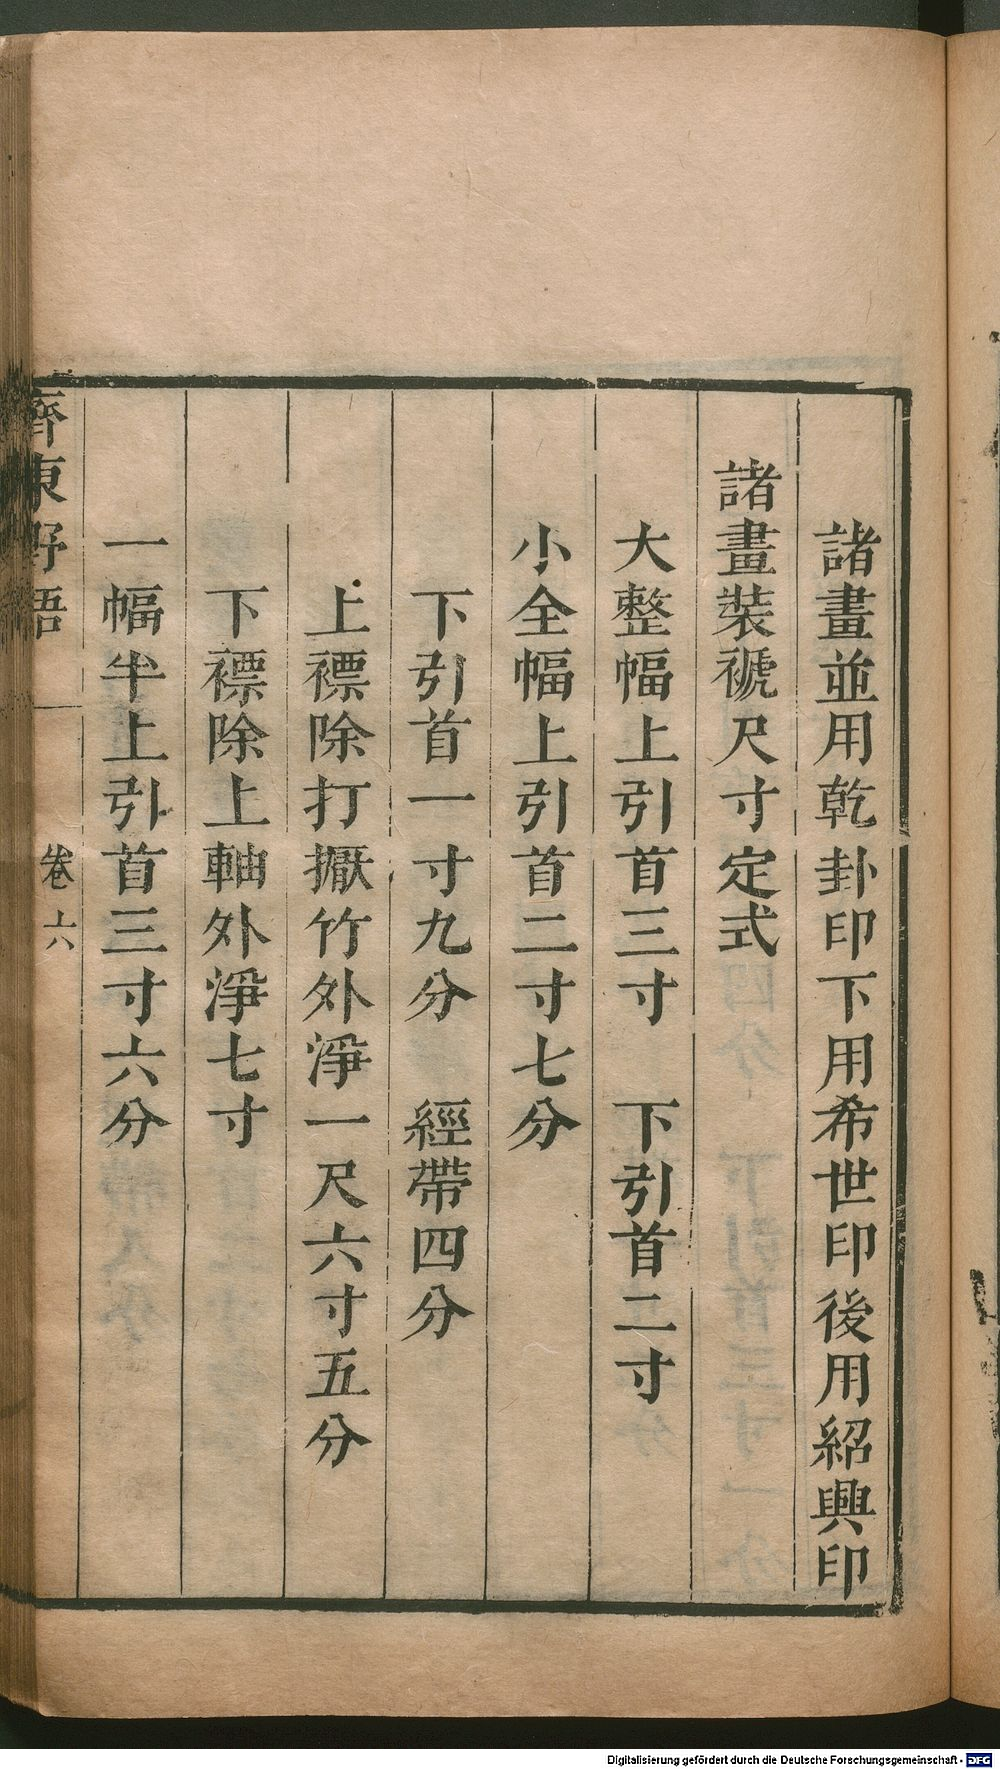 諸畫並用乾卦印下用希世印後用紹興印
諸畫裝褫尺寸定式
大整幅上引首三寸　下引首二寸
小全幅上引首二寸七分
下引首一寸九分　經帶四分
上褾除打擫竹外淨一尺六寸五分
下褾除上軸外淨七寸
一幅半上引首三寸六分
齊東野語　卷六
Digitalisierung gefördert durch die Deutsche Forschungsgemeinschaft - DFG